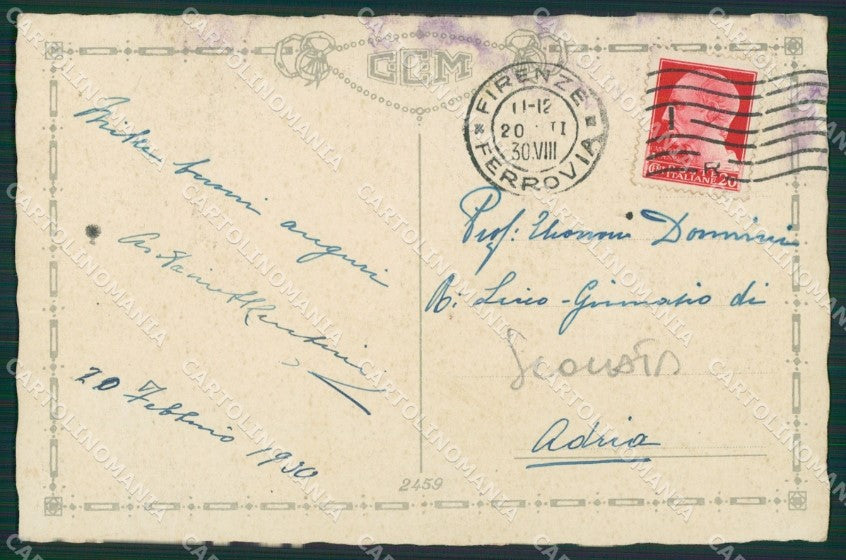 CEM
FIRENZE
11-12
20 II
30.VIII
FERROVIA
ITALIANE 20
buoni auguri
20 Febbraio 1930
Prof. Eleonora Donnini
R. Liceo-Ginnasio di
Adria
2459
CARTOLINOMANIA